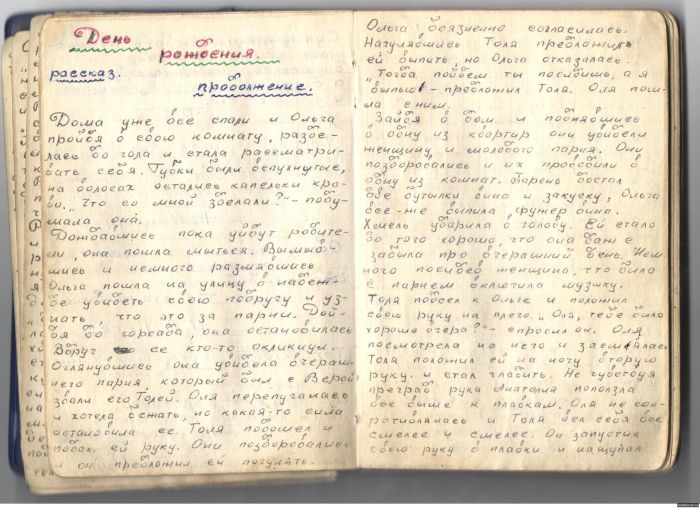 День
рождения.
рассказ.
продолжение.
Дома уже все спали и Ольга
пройдя в свою комнату, разде-
лась до гола и стала рассматри-
вать себя. Губки были вспухнутые,
на волосах остались капельки кро-
ви. "Что со мной зделали?" - поду-
мала она.
Дождавшись пока уйдут родите-
ли, она пошла мыться. Вымыв-
шись и немного размявшись
Ольга пошла на улицу в надеж-
де увидеть свою подругу и уз-
нать, что это за парни. Дой-
дя до горсада, она остановилась
Вдруг ее кто-то окликнул.
Оглянувшись она увидела вчераш-
него парня, который был с Верой
звали его Толей. Оля перепугалась
и хотела бежать, но какая-то сила
остановила ее. Толя подошел и
подал ей руку. Они поздоровались
и он предложил ей погулять.
Ольга боязненно согласилась.
Нагулявшись Толя предложил
ей выпить, но Ольга отказалась.
"Тогда пойдем ты посидишь, а я
выпью" - предложил Толя. Оля пош-
ла с ним.
Зайдя в дом и поднявшись
в одну из квартир они увидели
женщину и молодого парня. Они
поздоровались и их проводили в
одну из комнат. Парень достал
две бутылки вина и закуску, Ольга
все-же выпила фужер вина.
Хмель ударила в голову. Ей стало
до того хорошо, что она даже
забыла про вчерашний день. Нем-
ного посидев женщина, что была
с парнем включила музыку.
Толя подсел к Ольге и положил
свою руку на плечо. "Оля, тебе было
хорошо вчера?" - спросил он. Оля
посмотрела на него и засмеялась
Толя положил ей на ногу вторую
руку и стал гладить. Не чувствуя
преград рука Анатолия поползла
все выше к плавкам. Оля не соп-
ротивлялась и Толя вел себя все
смелее и смелее. Он запустил
свою руку в плавки и нащупал